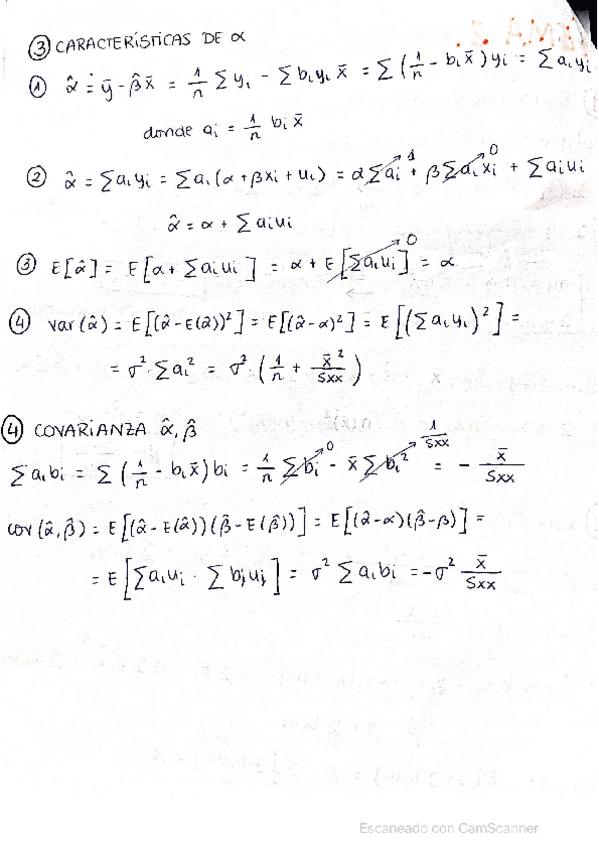 ③ CARACTERÍSTICAS DE α
① α̂ = ȳ - β̂x̄ = 1/n Σ yᵢ - Σ bᵢyᵢ x̄ = Σ (1/n - bᵢx̄) yᵢ = Σ aᵢyᵢ
donde aᵢ = 1/n bᵢ x̄
② α̂ = Σaᵢyᵢ = Σaᵢ(α + βxᵢ + uᵢ) = α Σaᵢ→1 + β Σaᵢxᵢ→0 + Σaᵢuᵢ
α̂ = α + Σ aᵢuᵢ
③ E[α̂] = E[α + Σaᵢuᵢ] = α + E[Σaᵢuᵢ]→0 = α
④ var(α̂) = E[(α̂ - E(α̂))²] = E[(α̂ - α)²] = E[(Σaᵢyᵢ)²] =
= σ² · Σaᵢ² = σ² · (1/n + x̄²/Sxx)
④ COVARIANZA α̂, β̂
Σaᵢbᵢ = Σ (1/n - bᵢx̄) bᵢ = 1/n Σbᵢ→0 - x̄ Σbᵢ²→1/Sxx = - x̄/Sxx
cov(α̂, β̂) = E[(α̂ - E(α̂))(β̂ - E(β̂))] = E[(α̂ - α)(β̂ - β)] =
= E[Σaᵢuᵢ · Σbⱼuⱼ] = σ² Σaᵢbᵢ = -σ² x̄/Sxx
Escaneado con CamScanner